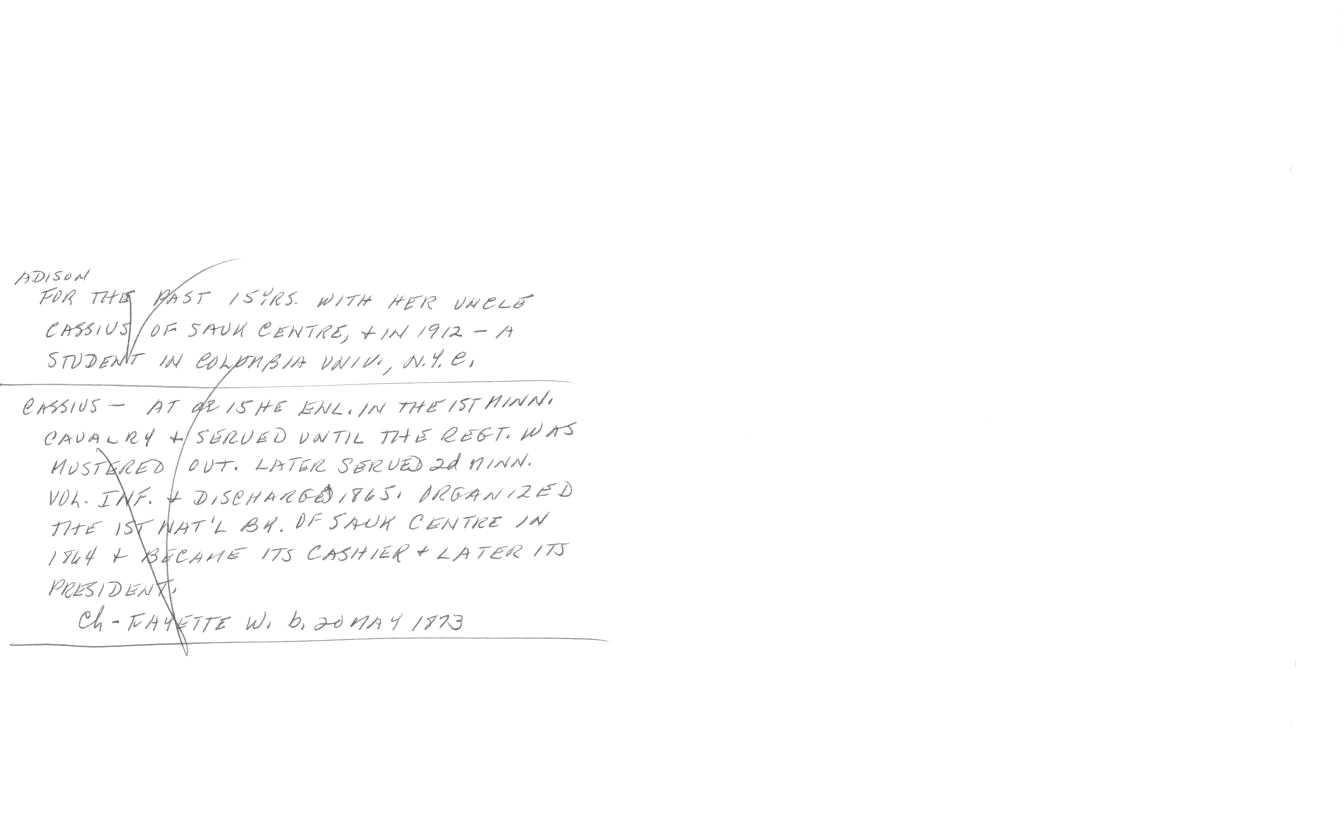 ADISON
FOR THE PAST 15 YRS. WITH HER UNCLE
CASSIUS OF SAUK CENTRE, + IN 1912 – A
STUDENT IN COLUMBIA UNIV., N.Y.C.
CASSIUS – AT 15 HE ENL. IN THE 1ST MINN.
CAVALRY + SERVED UNTIL THE REGT. WAS
MUSTERED OUT. LATER SERVED 2d MINN.
VOL. INF. + DISCHARGED 1865. ORGANIZED
THE 1ST NAT'L BK. OF SAUK CENTRE IN
1864 + BECAME ITS CASHIER + LATER ITS
PRESIDENT.
Ch – FAYETTE W. b. 20 MAY 1873